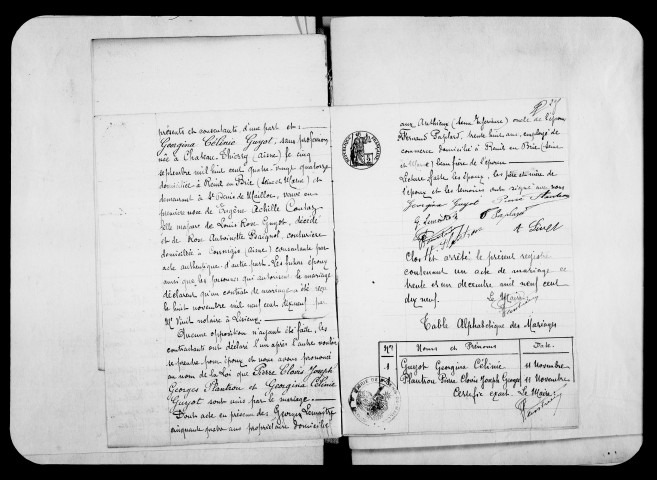 présents et consentants, d'une part et:
Georgina Célinie Guyot, sans profession
née à Chateau-Thierry (Aisne) le cinq
septembre mil huit cent quatre-vingt quatorze
domiciliée à Reuil en Brie (Seine et Marne) et
demeurant à St Denis de Mailloc, veuve en
première noce de Eugène Achille Coutay
fille majeure de Louis Rose Guyot, décédé
et de Rose Antoinette, couturière
domiciliée à (Aisne) consentante par
acte authentique d'autre part. Les futurs époux
ainsi que les personnes qui autorisent le mariage
déclarent qu'un contrat de mariage a été reçu
le huit novembre mil neuf cent dix neuf par
Me notaire à Lisieux
Aucune opposition n'ayant été faite, les
contractants ont déclaré l'un après l'autre vouloir
se prendre pour époux et nous avons prononcé
au nom de la Loi que Pierre Clovis Joseph
Georges Plantrou et Georgina Célinie
Guyot sont unis par le mariage.
Dont acte en présence de Georges Lemaitre
cinquante quatre ans propriétaire domicilié
aux Authieux (Seine Inférieure) oncle de l'époux
Fernand Paplard, trente huit ans, employé de
commerce domicilié à Reuil en Brie (Seine
et Marne) beau frère de l'épouse
Lecture faite les époux, les père et mère de
l'époux et les témoins ont signé avec nous
Georgina Guyot
Clos et arrêté le présent registre
contenant un acte de mariage ce
trente et un décembre mil neuf cent
dix neuf.
Le Maire
Table Alphabétique des Mariages
Nos Noms et Prénoms Date
1 Guyot Georgina Célinie 11 Novembre
1 Plantrou Pierre Clovis Joseph Georges 11 Novembre
Certifié exact. Le Maire: